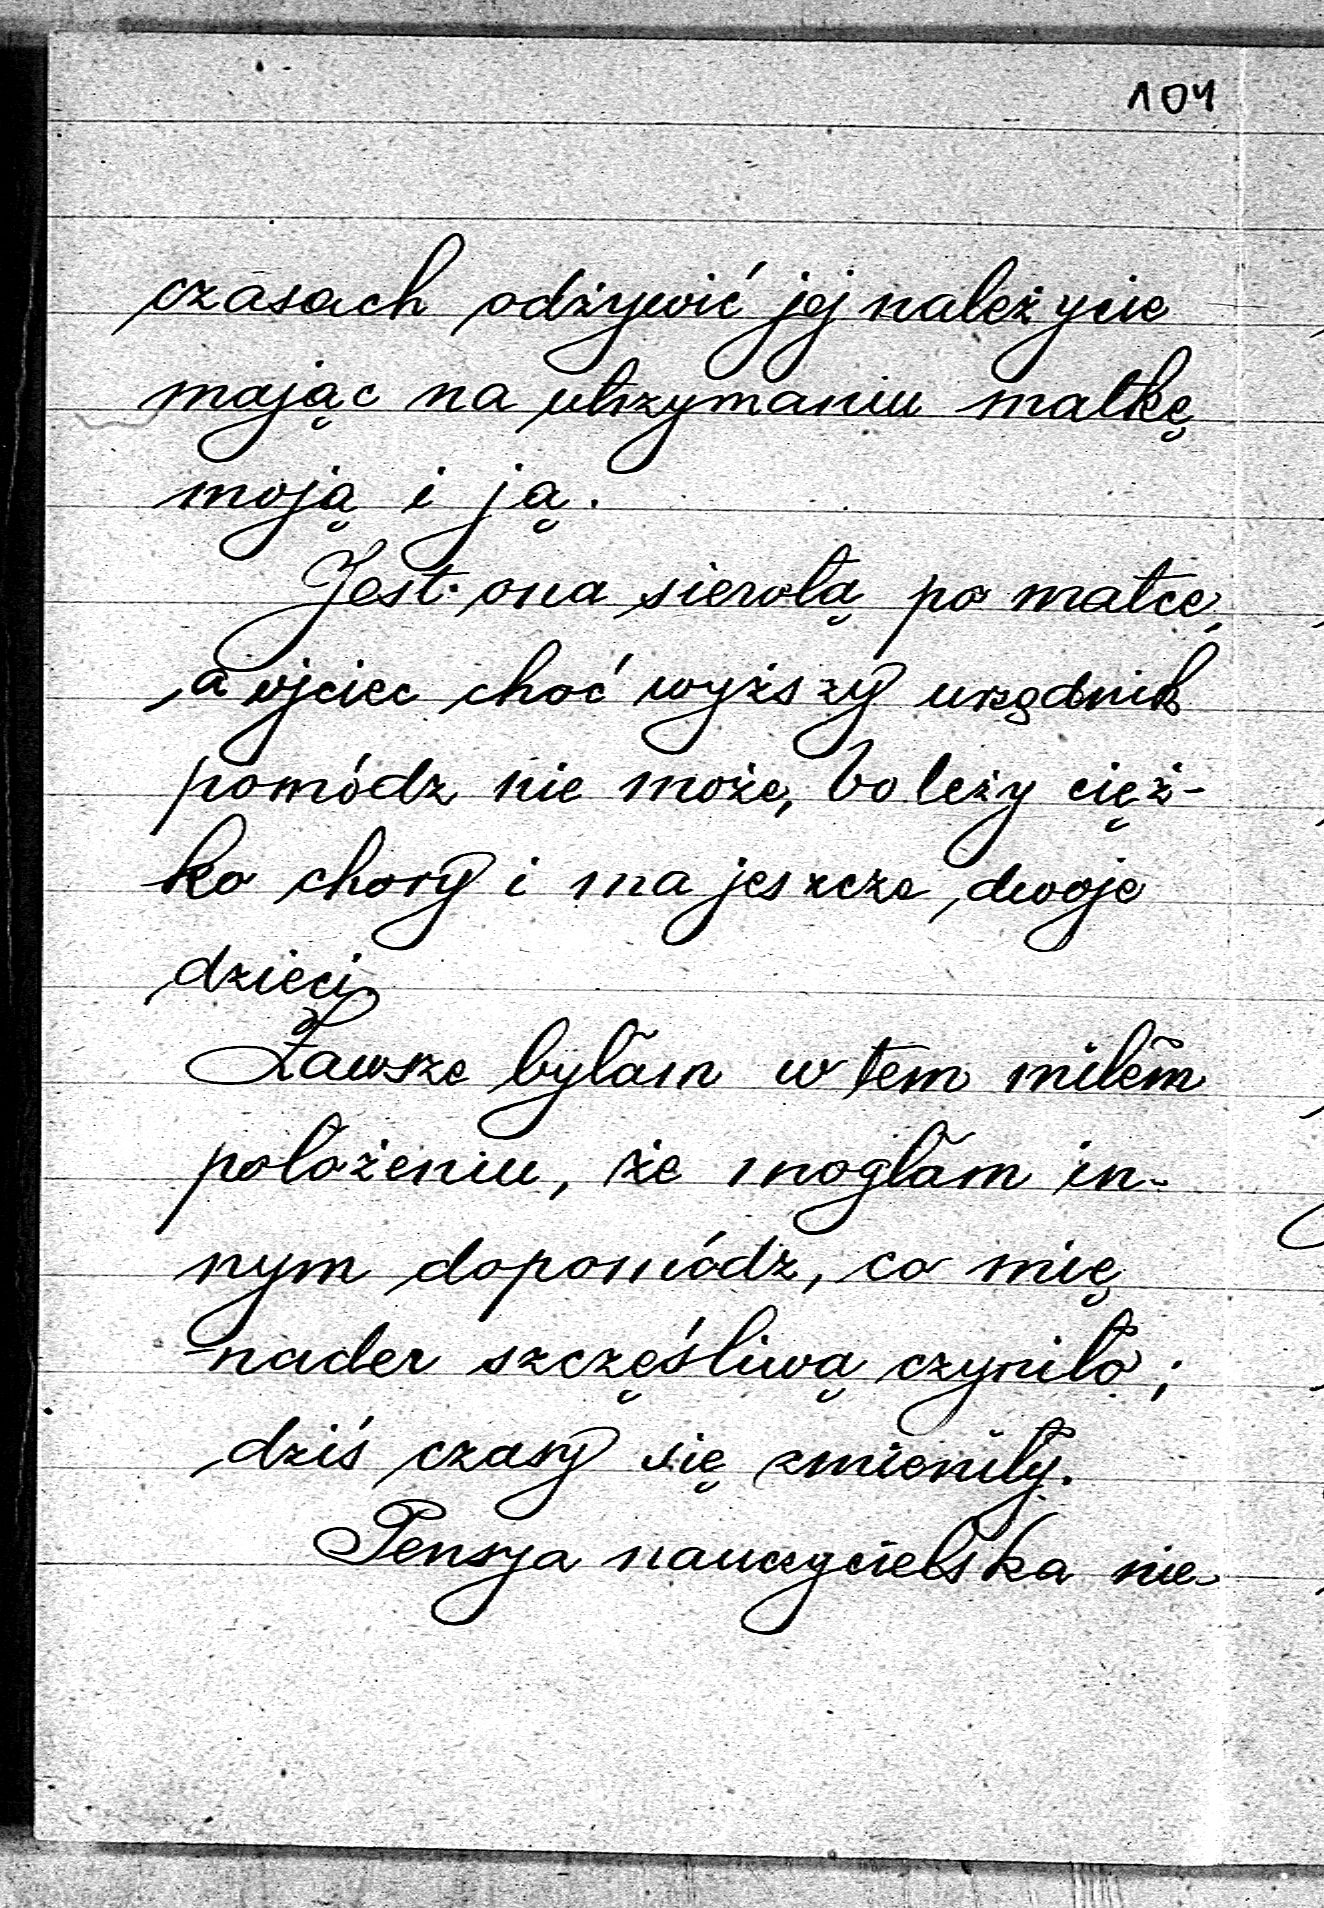 104
czasach odżywić jej należycie
mając na utrzymaniu matkę
moją i ją.
Jest ona sierotą po matce,
a ojciec choć wyższy urzędnik
pomódz nie może, bo leży cięż-
ko chory i ma jeszcze dwoje
dzieci.
Zawsze byłam w tem miłem
położeniu, że mogłam in-
nym dopomódz, co mię
nader szczęśliwą czyniło;
dziś czasy się zmieniły.
Pensya nauczycielska nie-